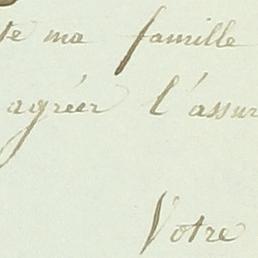 te ma famille
agréer l'assur
Votre